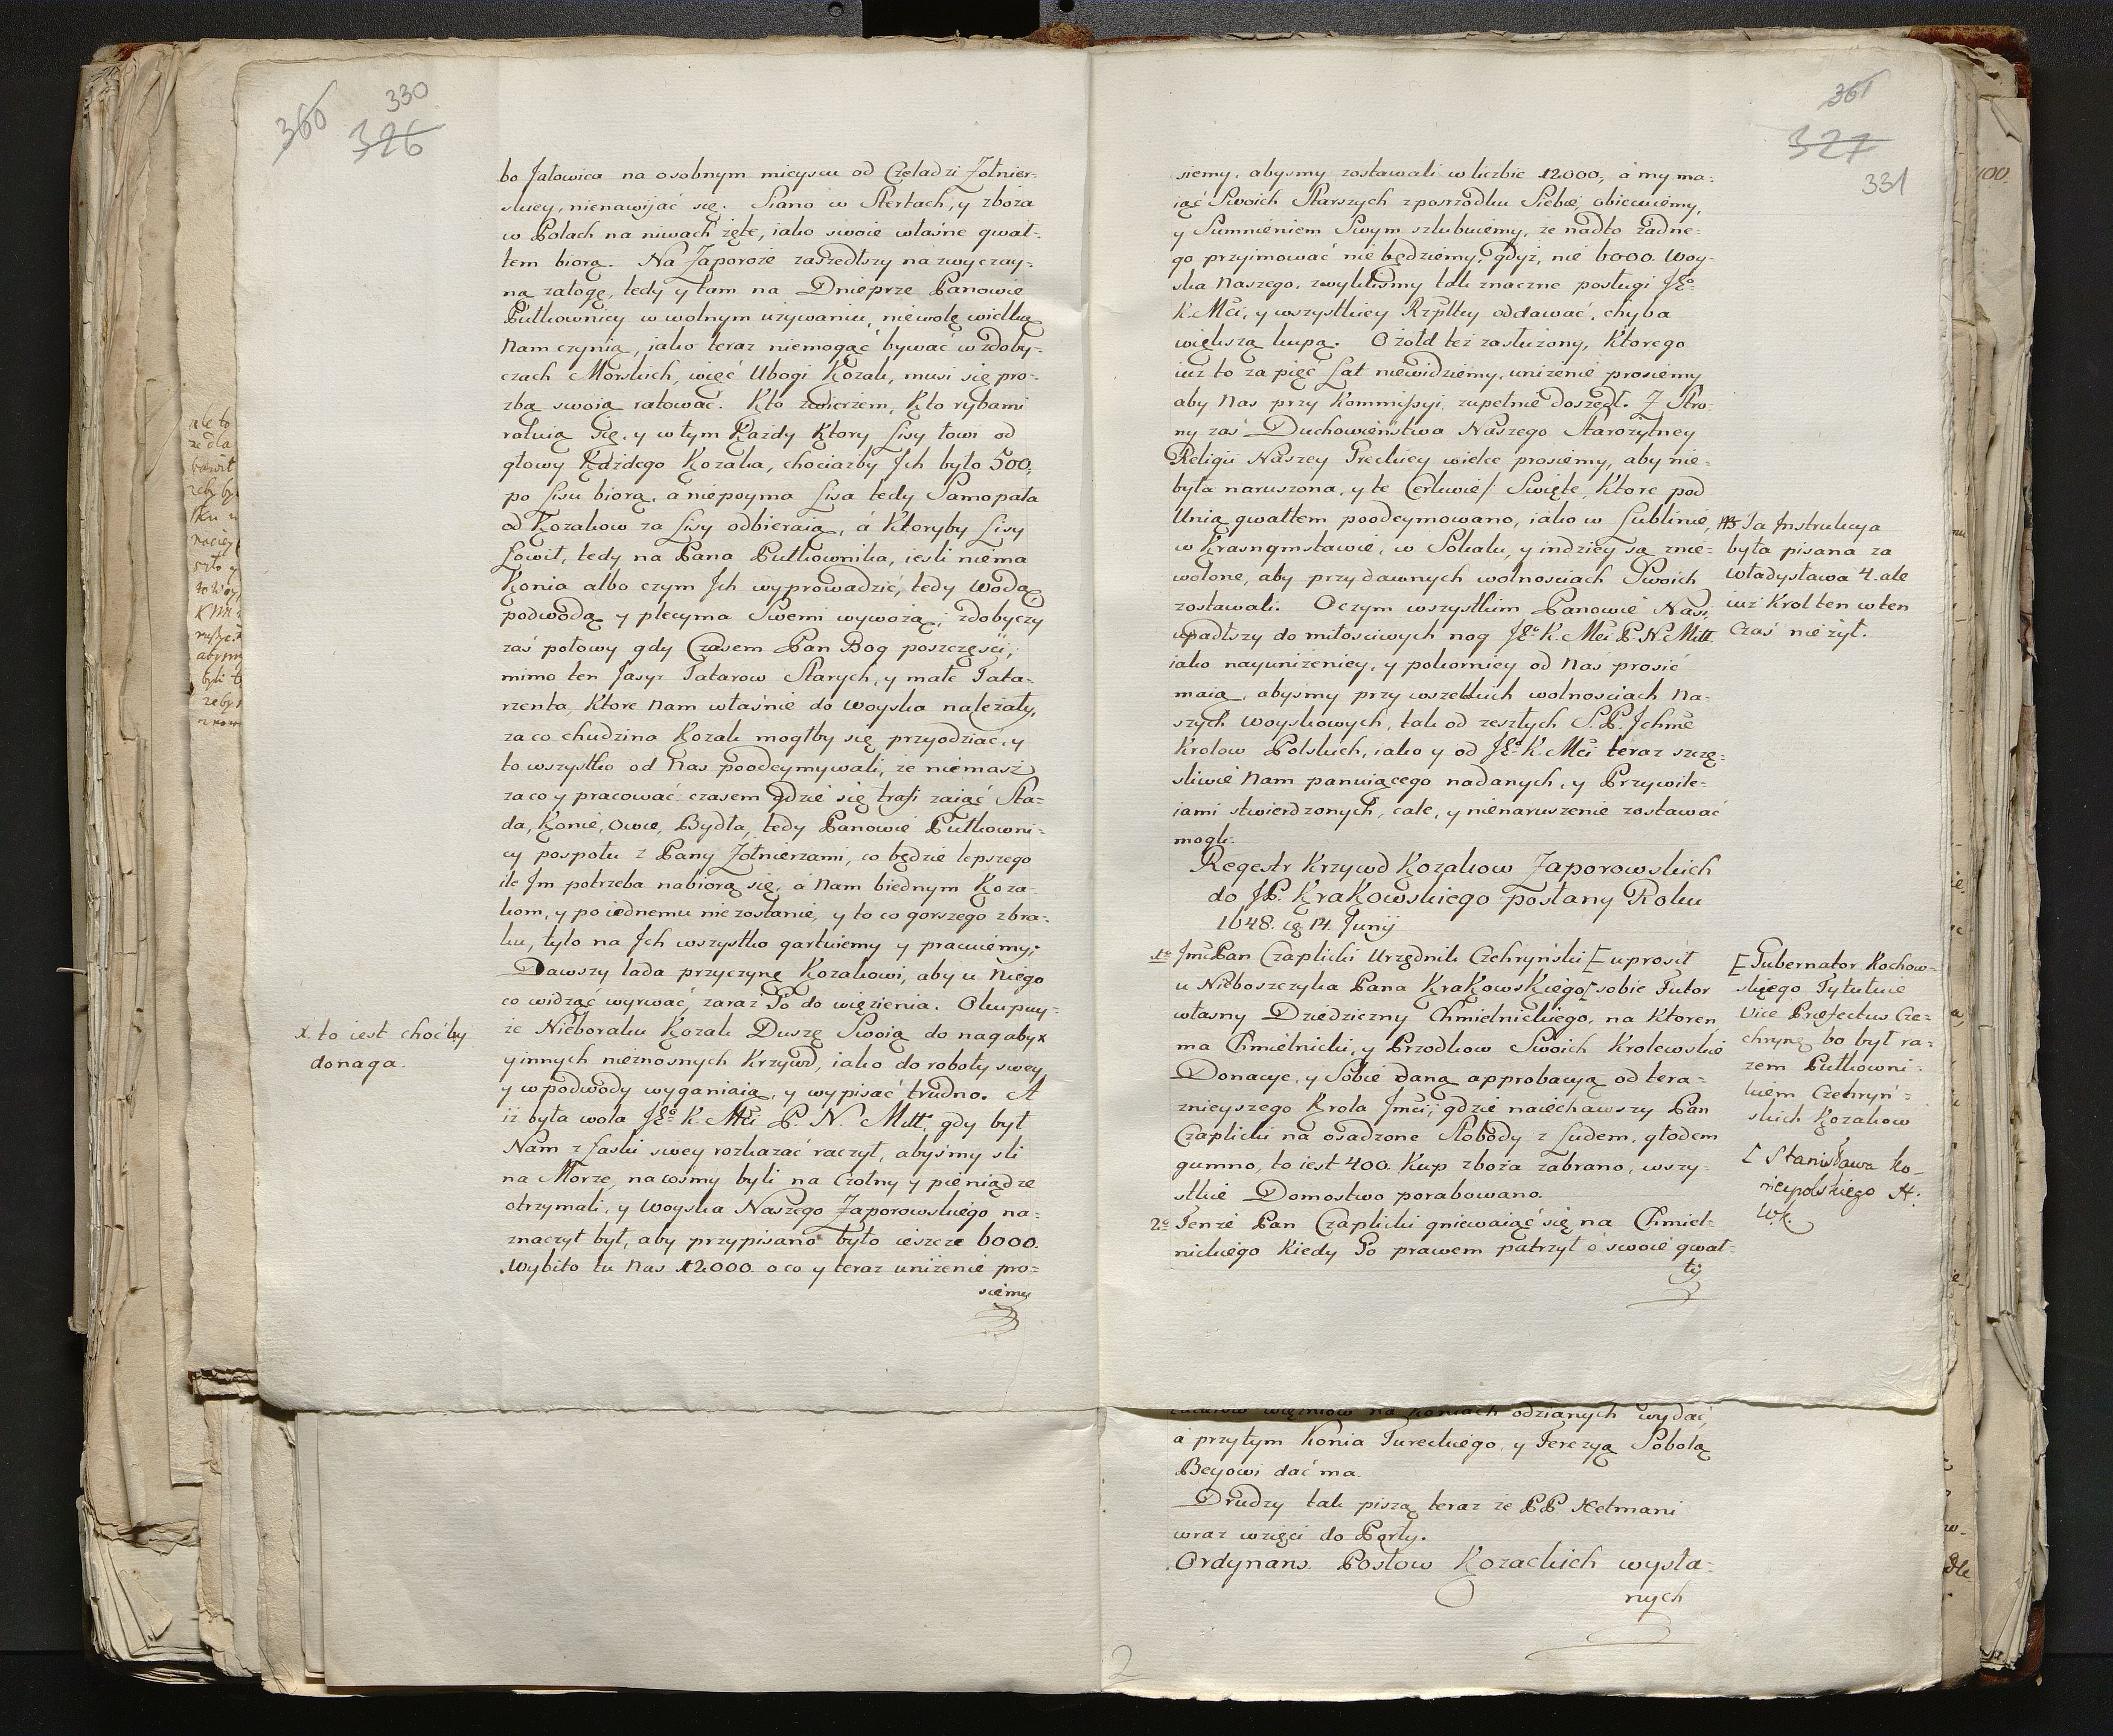 366 330
326
bo Jałowica na osobnym mieyscu od Czeladzi Żołnier-
skiey, nienawijać się. Siano w Stertach, y zboża
w Polach na niwach zęte, iako swoie własne gwał-
tem biorą. Na Zaporoże zaszedłszy na zwyczay-
ną załogę, tedy y tam na Dnieprze Panowie
Pułkownicy w wolnym używaniu, niewolę wielką
Nam czynią, iako teraz niemogąć bywać w zdoby-
czach Morskich, więć Ubogi Kozak, musi się pro-
zbą swoią ratować. Kto zwierzem, Kto rybami
ratuią się, y w tym Kazdy Ktory Lisy łowi od
głowy Kazdego Kozaka, chociazby Jch było 500.
po Lisu biorą, a niepoyma Lisa tedy Samopała
od Kozakow za Lisy odbieraią, á Ktoryby Lisy
Łowił, tedy na Pana Pułkownika, iesli niema
Konia albo czym Jch wyprowadzić, tedy wodą
podwodą y plecyma Swemi wywożą; zdobyczy
zaś połowy gdy Czasem Pan Bog poszczęści,
mimo ten Jasyr Tatarow Starych, y małe Tata-
rzenta, Ktore Nam własnie do Woyska należały,
za co chudzina Kozak mogłby się przyodziać, y
to wszystko od Nas poodeymywali, że niemasz
za co y pracować czasem gdzie się trafi zaiąć Sta-
da, Konie, Owce, Bydła, tedy Panowie Pułkowni-
cy pospołu z Pany Żołnierzami, co będzie lepszego
ile Jm potrzeba nabiorą się, á Nam biednym Koza-
kom, y po iednemu nie zostanie, y to co gorszego zbra-
ku, tylo na Jch wszystko garkuiemy y pracuiemy;
Dawszy lada przyczynę Kozakowi, aby u Niego
co widząć wyrwać, zaraz Go do więzienia. Okupuy-
że Nieboraku Kozak Duszę Swoią do nagaby x
y innych nieznosnych Krzywd, iako do roboty swey
y w podwody wyganiaią, y wypisać trudno. A
iż była wola JEo K. Mci P. N. Mitt. gdy był
Nam z Łaski swey rozkazać raczył, abyśmy sli
na Morze, na cośmy byli na Czołny y pieniądze
otrzymali, y Woyska Naszego Zaporowskiego na-
znaczył był, aby przypisano było ieszcze 6000.
Wybiło tu Nas 12000. o co y teraz uniżenie pro-
siemy
x. to iest choćby
donaga.
361
327
331
siemy, abysmy zostawali w liczbie 12000, á my ma-
iąć Swoich Starszych zposrzodku Siebie, obiecuiemy,
y Sumnieniem Swym szlubuiemy, że nadto żadne-
go przyjmować nie będziemy, gdyż, nie 6000. Woy-
ska Naszego, zwykliśmy tak znaczne posługi JEo
K. Mci, y wszystkiey Rzpltey oddawać, chyba
większą kupą. O żołd też zasłużony, Ktorego
iuż to za pięć Lat niewidziemy, unizenie prosiemy
aby Nas przy Kommissyi, zupełnie doszedł. Z Stro-
ny zaś Duchowieństwa Naszego Starożytney
Religii Naszey Greckiey wielce prosiemy, aby nie-
była naruszona, y te Cerkwie Swięte, Ktore pod
Unią gwałtem poodeymowano, iako w Lublinie,
w Krasnymstawie, w Sokalu, y indziey są znie-
wolone, aby przy dawnych wolnosciach Swoich
zostawali. O czym wszystkim Panowie Nasi
upadłszy do miłosciwych nog JEo K. Mci P. N. Mitt.
iako nayunizeniey, y pokorniey od Nas prosić
maią, abyśmy przy wszelkich wolnosciach Na-
szych Woyskowych, tak od zeszłych S. P. Jchmc
Krolow Polskich, iako y od JEo K. Mci teraz szczę-
sliwie Nam panuiącego nadanych, y Przywile-
iami stwierdzonych, cale, y nienaruszenie zostawać
mogli.
NB Ta Jnstrukcya
była pisana za
Władysława 4. ale
iuż Krol ten w ten
Czas nie żył.
Regestr Krzywd Kozakow Zaporowskich
do JP. Krakowskiego posłany Roku
1648. 14. Junij
1o Jmć Pan Czaplicki Urzędnik Czehryński [ uprosił
u Nieboszczyka Pana Krakowskiego [ sobie Futor
własny Dziedziczny Chmielnickiego, na Ktoren
ma Chmielnicki, y Przodkow Swoich Krolewskie
Donacye, y Sobie daną approbacyą od tera-
znieyszego Krola Jmci, gdzie naiechawszy Pan
Czaplicki na osadzone Słobody z Ludem, głodem
gumno, to iest 400. Kup zboża zabrano, wszy-
stkie Domostwo porabowano.
2o Tenże Pan Czaplicki gniewaiąć się na Chmiel-
nickiego Kiedy Go prawem patrzył o swoie gwał-
ty
[ Gubernator Kochow-
skiego Tytułuie
Vice Præfectus Cze-
chryng bo był ra-
zem Pułkowni-
kiem Czehryń-
skich Kozakow
[ Stanisława Ko-
niecpolskiego H.
W. K.
więzniow na koniach odzianych wydać,
á przytym Konia Tureckiego, y Ferezyą Sobolą
Beyowi dać ma.
Drudzy tak piszą teraz że PP. Hetmani
wraz wzięci do Porty.
Ordynans Posłow Kozackich wysła-
nych
2